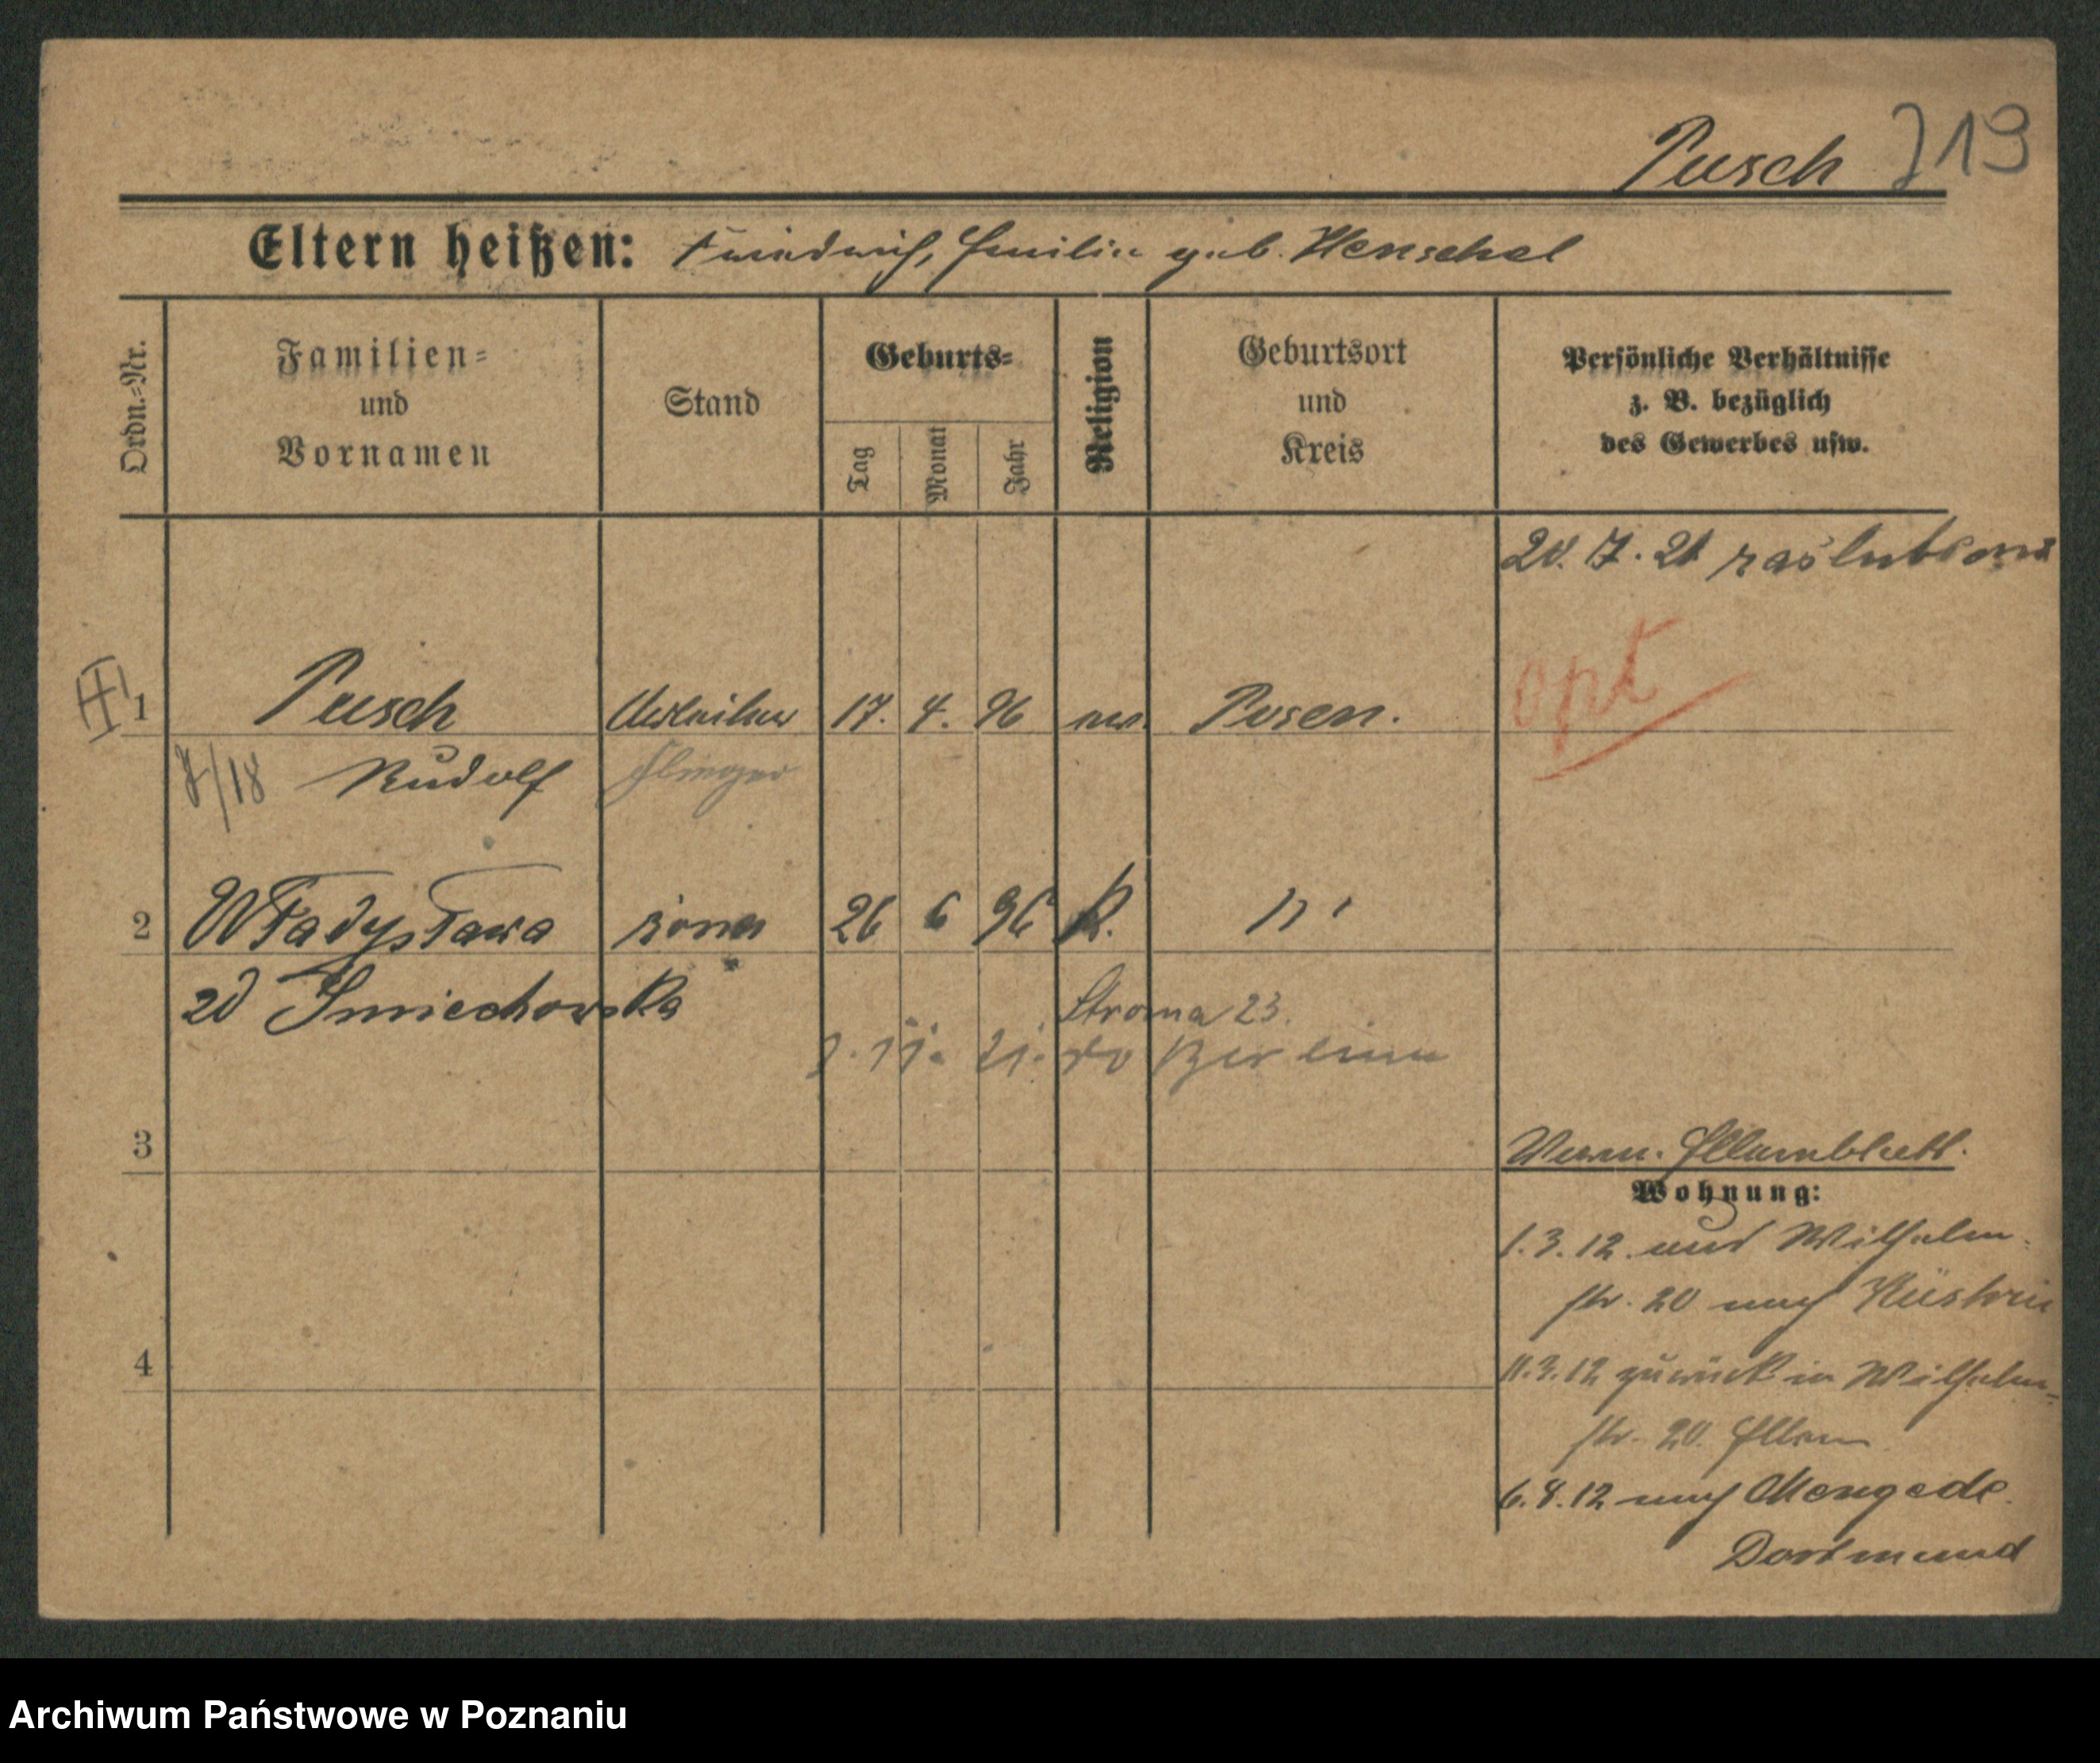 Pusch 719
Eltern heißen: Friedrich, Emilie geb. Henschel
Ordn.-Nr.
Familien-
und
Vornamen
Stand
Geburts-
Tag
Monat
Jahr
Religion
Geburtsort
und
Kreis
Persönliche Verhältnisse
z. B. bezüglich
des Gewerbes usw.
20. 7. 21 zaślubiony
opt
1 Pusch Arbeiter 17. 4. 96 ev. Posen.
7/18 Rudolf
2 Władysława żona 26 6 96 K. "
zd Śmiechowska
Stroma 23.
11. 21. do Berlina
3
Verm. Elternblatt.
Wohnung:
1.3.12. aus Wilhelm-
str. 20 nach Küstrin
4
11.3.12 zurück in Wilhelm-
str. 20. Eltern
6.8.12 nach Mengede
Dortmund
Archiwum Państwowe w Poznaniu